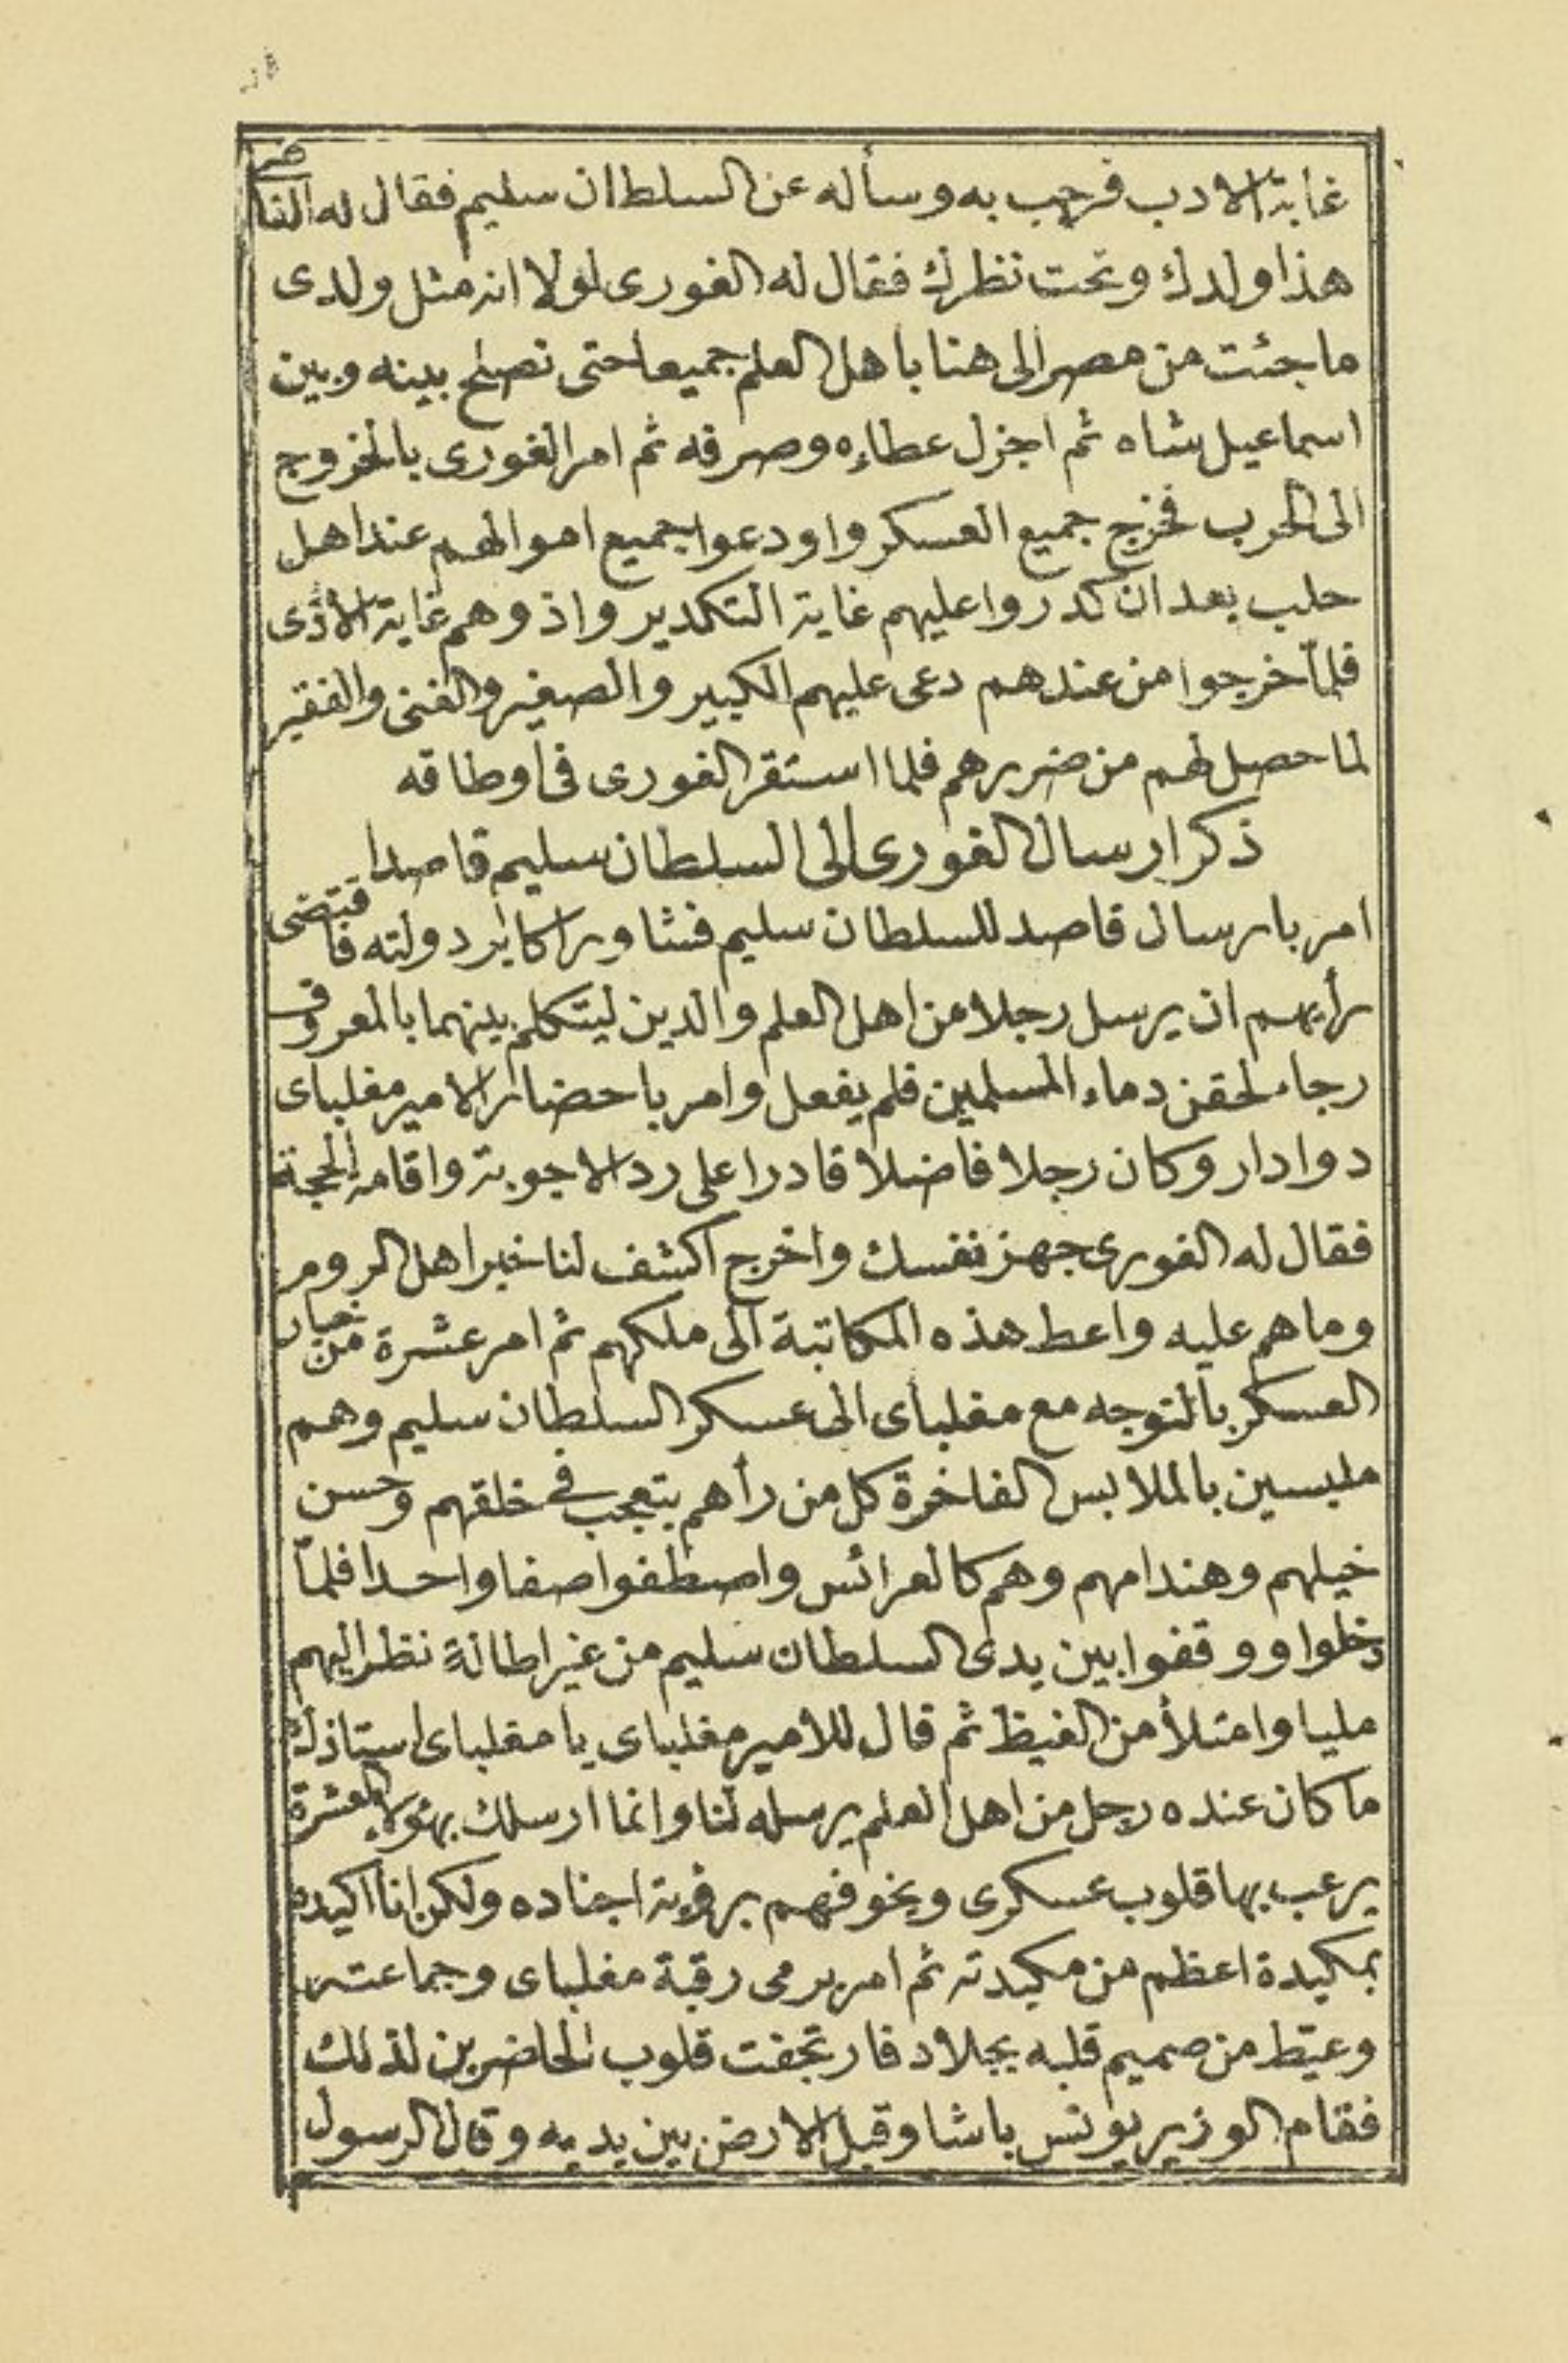 غاية الادب فرحب به وسأله عن السلطان سليم فقال له القاضى
هذا ولدك وتحت نظرك فقال له الغورى لولا انه مثل ولدى
ما جئت من مصر الى هنا باهل العلم جميعا حتى نصلح بينه وبين
اسماعيل شاه ثم اجزل عطاءه وصرفه ثم امر الغورى بالخروج
الى الحرب فخرج جميع العسكر واودعوا جميع اموالهم عند اهل
حلب بعد ان كدروا عليهم غاية التكدير واذوهم غاية الأذى
فلمّا خرجوا من عندهم دعى عليهم الكبير والصغير والغنى والفقير
لما حصل لهم من ضررهم فلما استقر الغورى فى اوطاقه
ذكر ارسال الغورى الى السلطان سليم قاصدا
امر بارسال قاصد للسلطان سليم فشاور اكابر دولته فاقتضى
رأيهم ان يرسل رجلا من اهل العلم والدين ليتكلم بينهما بالمعروف
رجاء لحقن دماء المسلمين فلم يفعل وامر باحضار الامير مغلباى
دوادار وكان رجلا فاضلا قادرا على رد الاجوبة واقامة الحجة
فقال له الغورى جهز نفسك واخرج اكشف لنا خبر اهل الروم
وما هم عليه واعط هذه المكاتبة الى ملكهم ثم امر عشرة من خيار
العسكر بالتوجه مع مغلباى الى عسكر السلطان سليم وهم
ملبسين بالملابس الفاخرة كل من رأهم يتعجب فى خلقهم وحسن
خيلهم وهندامهم وهم كالعرائس واصطفوا صفا واحدا فلمّا
دخلوا ووقفوا بين يدى السلطان سليم من غير اطالة نظر اليهم
مليا وامتلأ من الغيظ ثم قال للامير مغلباى يا مغلباى استاذك
ما كان عنده رجل من اهل العلم يرسله لنا وانما ارسلك بهؤلاء العشرة
يرعب بها قلوب عسكرى ويخوفهم برؤية اجناده ولكن انا اكيده
بمكيدة اعظم من مكيدته ثم امر برمى رقبة مغلباى وجماعته
وعيّط من صميم قلبه بجلاد فارتجفت قلوب الحاضرين لذلك
فقام الوزير يونس باشا وقبل الارض بين يديه وقال الرسول